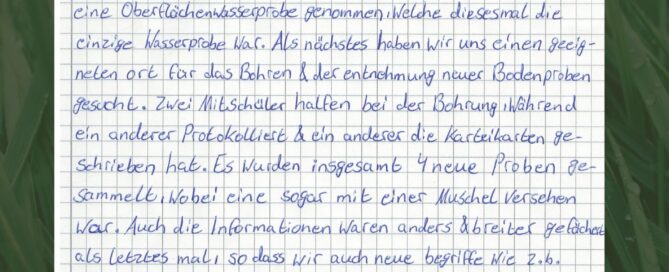 eine Oberflächenwasserprobe genommen, welche diesesmal die
einzige Wasserprobe war. Als nächstes haben wir uns einen geeig-
neten ort für das Bohren & der entnehmung neuer Bodenproben
gesucht. Zwei Mitschüler halfen bei der Bohrung, während
ein anderer Protokolliert & ein anderer die Karteikarten ge-
schrieben hat. Es wurden insgesamt 4 neue Proben ge-
sammelt, wobei eine sogar mit einer Muschel versehen
war. Auch die Informationen waren anders & breiter gefächert
als letztes mal, so dass wir auch neue begriffe wie z.b.